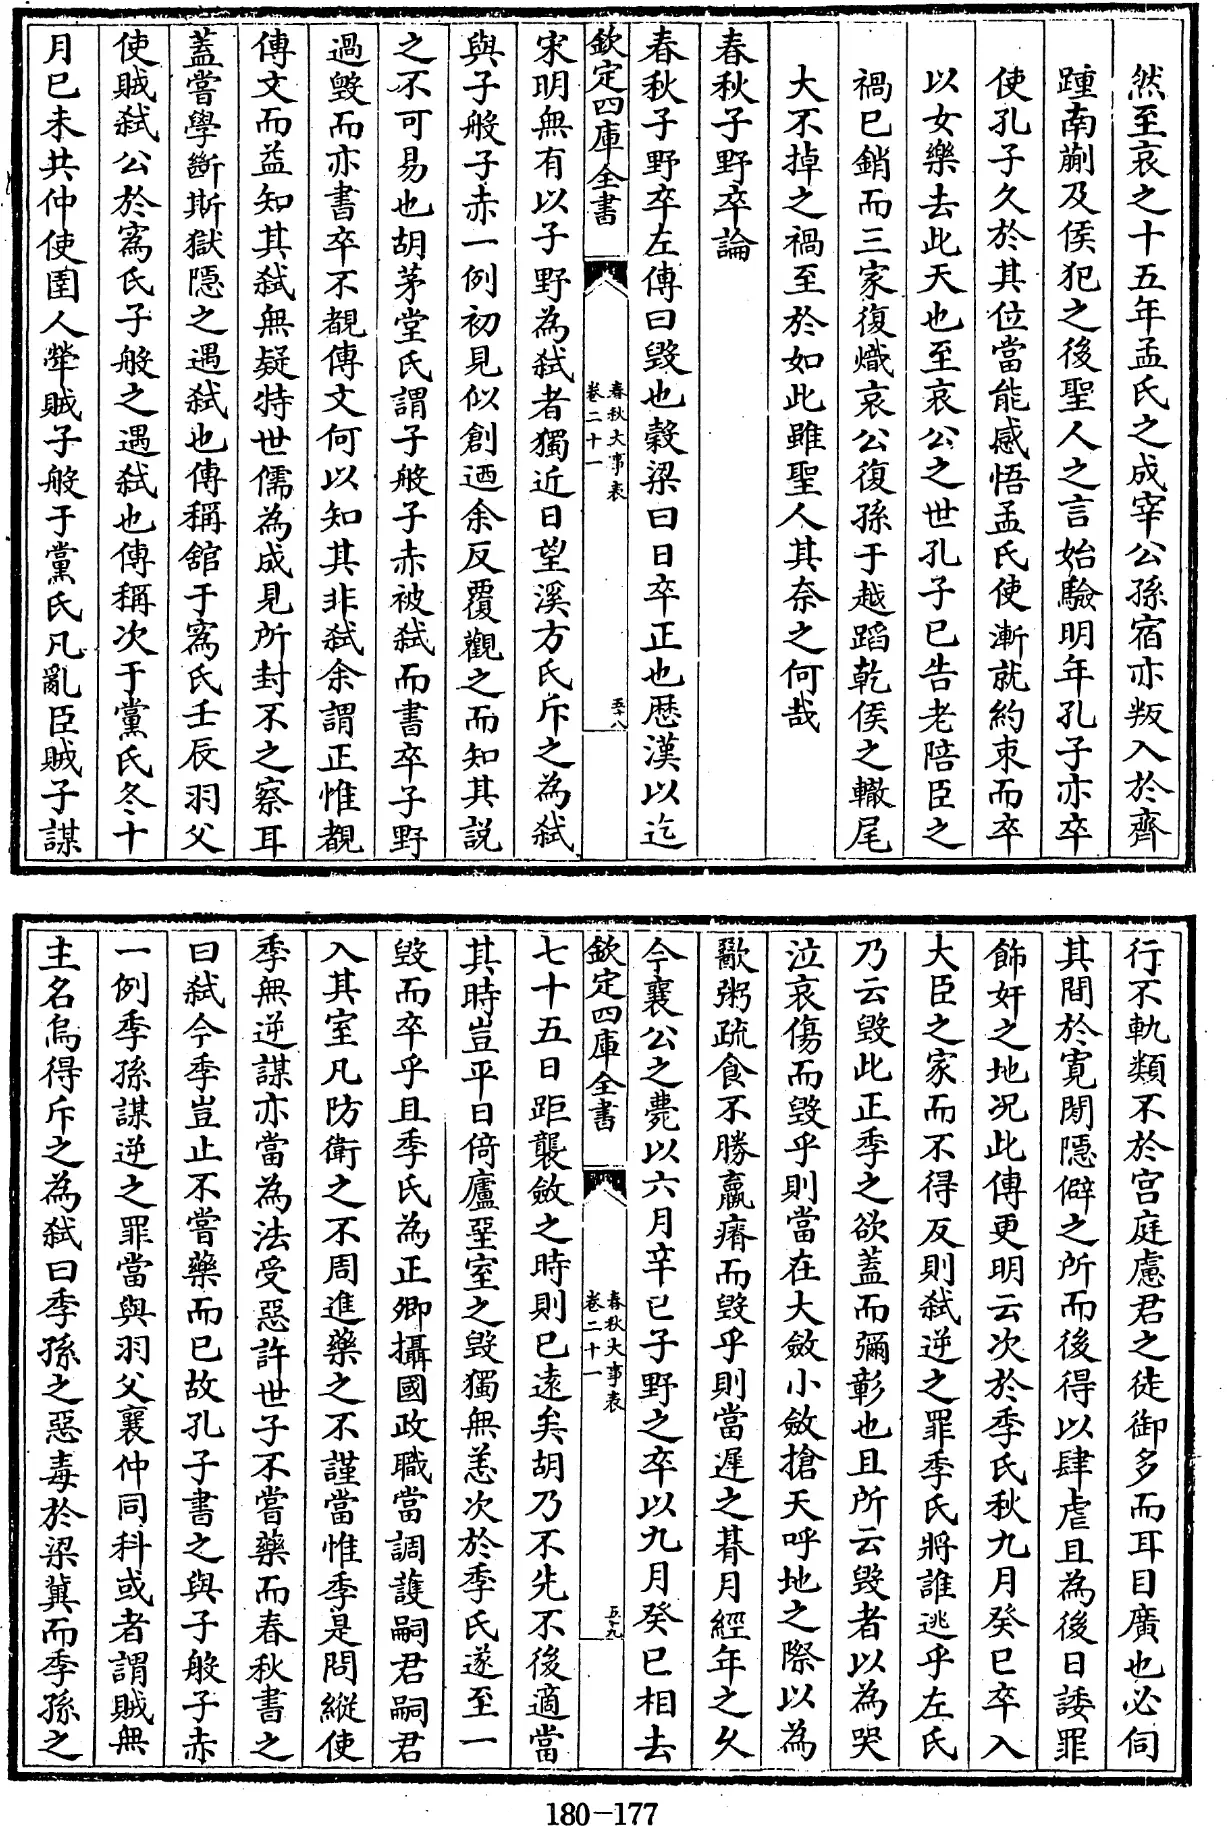 然至哀之十五年孟氏之成宰公孫宿亦叛入於齊
踵南蒯及侯犯之後聖人之言始驗明年孔子亦卒
使孔子久於其位當能感悟孟氏使漸就約束而卒
以女樂去此天也至哀公之世孔子已告老陪臣之
禍已銷而三家復熾哀公復孫于越蹈乾侯之轍尾
大不掉之禍至於如此雖聖人其奈之何哉
春秋子野卒論
春秋子野卒左傳曰毀也穀梁曰日卒正也歴漢以迄
欽定四庫全書
春秋大事表
卷二十一
五十八
宋明無有以子野為弒者獨近日望溪方氏斥之為弒
與子般子赤一例初見似創迺余反覆觀之而知其説
之不可易也胡茅堂氏謂子般子赤被弒而書卒子野
過毀而亦書卒不覩傳文何以知其非弒余謂正惟覩
傳文而益知其弒無疑特世儒為成見所封不之察耳
蓋嘗學斷斯獄隱之遇弒也傳稱舘于寪氏壬辰羽父
使賊弒公於寪氏子般之遇弒也傳稱次于黨氏冬十
月已未共仲使圉人犖賊子般于黨氏凡亂臣賊子謀
行不軌類不於宫庭慮君之徒御多而耳目廣也必伺
其間於寛閒隱僻之所而後得以肆虐且為後日諉罪
飾奸之地况此傳更明云次於季氏秋九月癸巳卒入
大臣之家而不得反則弒逆之罪季氏將誰逃乎左氏
乃云毀此正季之欲蓋而彌彰也且所云毀者以為哭
泣哀傷而毀乎則當在大斂小斂搶天呼地之際以為
歠粥疏食不勝羸瘠而毀乎則當遲之朞月經年之久
今襄公之薨以六月辛已子野之卒以九月癸巳相去
欽定四庫全書
春秋大事表
卷二十一
五十九
七十五日距襲斂之時則已遠矣胡乃不先不後適當
其時豈平日倚廬堊室之毀獨無恙次於季氏遂至一
毀而卒乎且季氏為正卿攝國政職當調護嗣君嗣君
入其室凡防衛之不周進藥之不謹當惟季是問縱使
季無逆謀亦當為法受惡許世子不嘗藥而春秋書之
曰弒今季豈止不嘗藥而已故孔子書之與子般子赤
一例季孫謀逆之罪當與羽父襄仲同科或者謂賊無
主名烏得斥之為弒曰季孫之惡毒於梁冀而季孫之
180-177